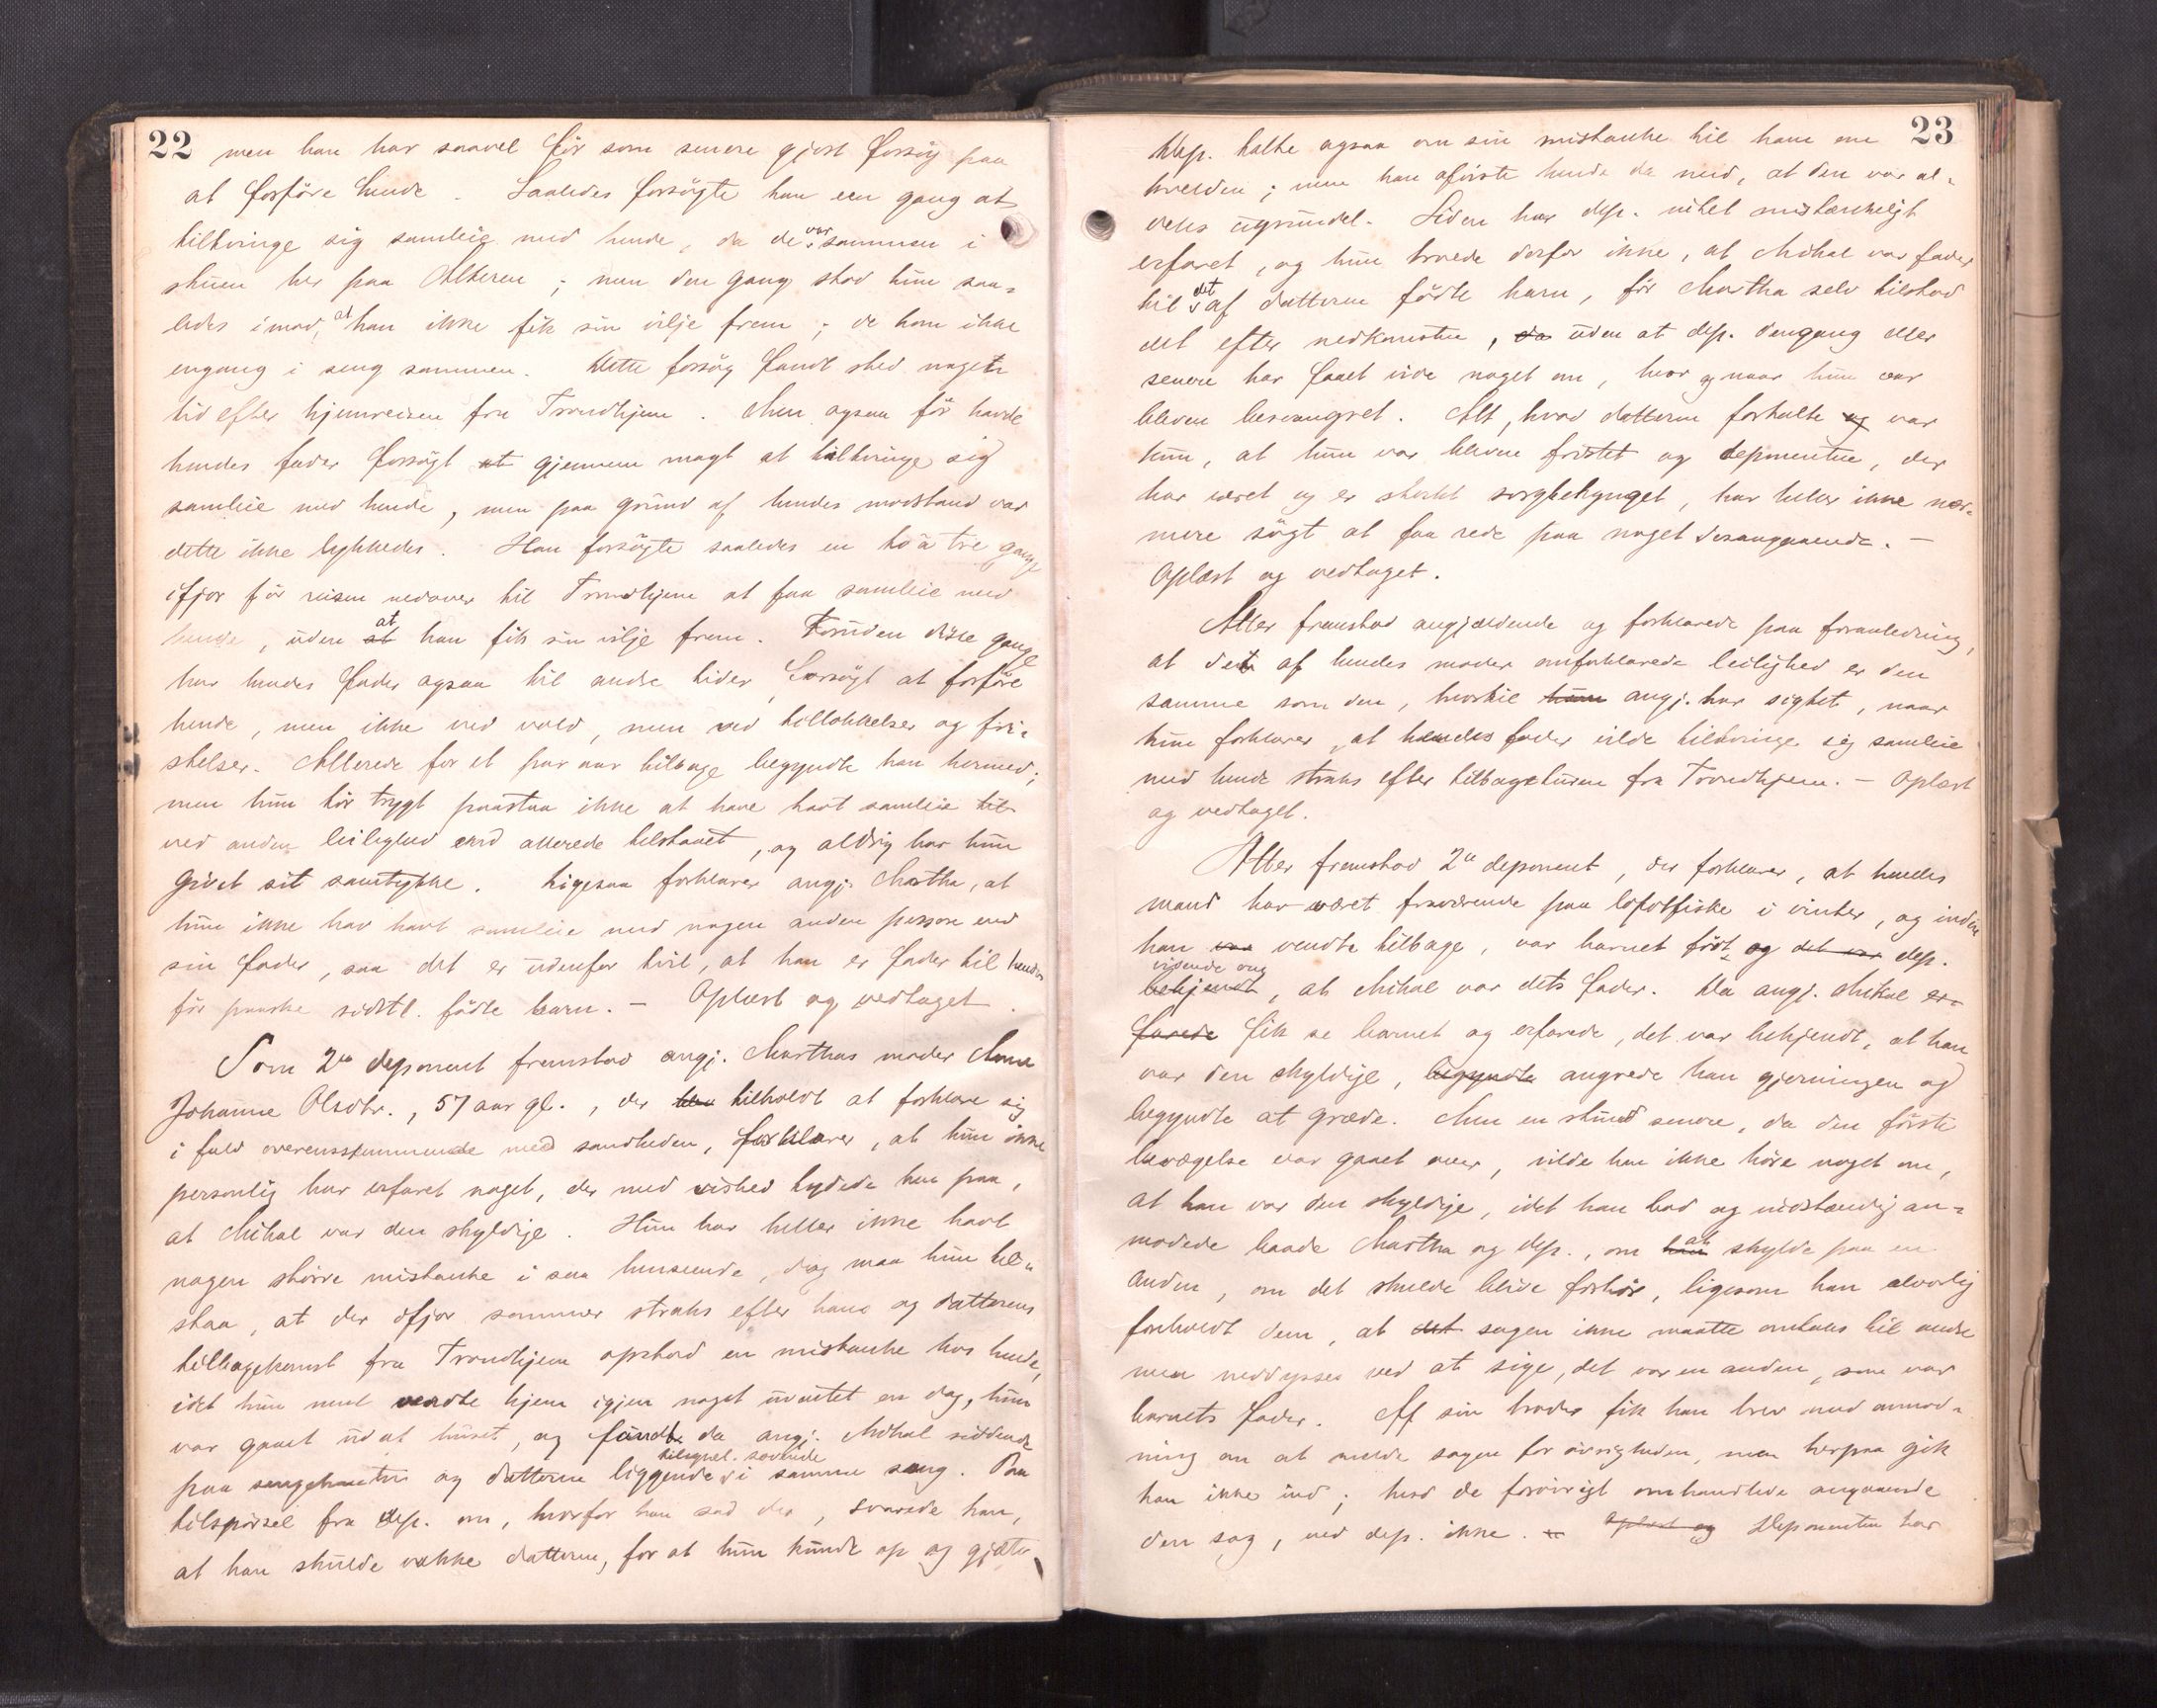 22
men han har saavel før som senere gjort forsøg paa
at forføre hende. Saaledes forsøgte han een gang at
tiltvinge sig samleie med hende, da de var sammen i
stuen her paa Alteren; men den gang stod hun saa-
ledes imod, at han ikke fik sin vilje frem; de kom ikke
engang i seng sammen. Dette forsøg fandt sted nogen
tid efter hjemreisen fra Trondhjem. Men ogsaa før havde
hendes fader forsøgt at gjennem magt at tiltvinge sig
samleie med hende, men paa grund af hendes modstand var
dette ikke lykkedes. Han forsøgte saaledes en to à tre gange
ifjor før reisen nedover til Trondhjem at faa samleie med
hende, uden at han fik sin vilje frem. Foruden disse gange
har hendes fader ogsaa til andre tider forsøgt at forføre
hende, men ikke ved vold, men ved tillokkelser og fri-
stelser. Allerede for et par aar tilbage begyndte han hermed;
men hun tør trygt paastaa ikke at have havt samleie til
ved anden leilighed end allerede tilstaaet, og aldrig har hun
givet sit samtykke. Ligesaa forklarer angj. Martha, at
hun ikke har havt samleie med nogen anden person end
sin fader, saa det er udenfor tvil, at han er fader til hendes
før paaske sidstl. fødte barn. — Oplæst og vedtaget.
Som 2de deponent fremstod angj. Marthas moder Anna
Johanne Olsdtr., 57 aar gl., der blev tilholdt at forklare sig
i fuld overensstemmende med sandheden, forklarer, at hun ikke
personlig har erfaret noget, der med vished tydede hen paa,
at Mikal var den skyldige. Hun har heller ikke havt
nogen større mistanke i saa henseende, dog maa hun til-
staa, at der ifjor sommer straks efter hans og datterens
tilbagekomst fra Trondhjem opstod en mistanke hos hende,
idet hun med vendte hjem igjen noget uventet en dag, hun
var gaaet ud at huset, og fandt da angj. Mikal siddende
paa sengekanten og datteren liggende tilsynel. sovende i samme seng. Paa
tilspørsel fra dep. om, hvorfor han sad der, svarede han,
at han skulde vække datteren, for at hun kunde op og gjæte
23
Dep. talte ogsaa om sin mistanke til ham om
kvelden; men han afviste hende da med, at den var al-
deles ugrundet. Siden har dep. intet mistænkeligt
erfaret, og hun troede derfor ikke, at Mikal var fader
til det af datteren fødte barn, før Martha selv tilstod
det efter nedkomsten, da uden at dep. dengang eller
senere har faaet vide noget om, hvor og naar hun var
bleven besvangret. Alt, hvad datteren fortalte og var
kun, at hun var bleven fristet og deponenten, der
har været og er sterkt sorgbetynget, har heller ikke nær-
mere søgt at faa rede paa noget desangaaende. —
Oplæst og vedtaget.
Atter fremstod angjældende og forklarede paa foranledning,
at det af hendes moder omforklarede leilighed er den
samme som den, hvortil hun angj. har sigtet, naar
hun forklarer, at hendes fader vilde tiltvinge sig samleie
med hende straks efter tilbageturen fra Trondhjem. — Oplæst
og vedtaget.
Atter fremstod 2de deponent, der forklarer, at hendes
mand har været fraværende paa lofotfiske i vinter, og inden
han var vendte tilbage, var barnet født, og det var dep.
vidende om
bekjendt, at Mikal var dets fader. Da angj. Mikal er-
farede fik se barnet og erfarede, det var bekjendt, at han
var den skyldige, begyndte angrede han gjerningen og
begyndte at græde. Men en stund senere, da den første
bevægelse var gaaet over, vilde han ikke høre noget om,
at han var den skyldige, idet han bad og indstændig an-
modede baade Martha og dep., om han at skylde paa en
anden, om det skulde blive forhør, ligesom han alvorlig
foreholdt dem, at det sagen ikke maatte omtales til andre
men neddysses ved at sige, det var en anden, som var
barnets fader. Af sin broder fik han brev med anmod-
ning om at melde sagen for øvrigheden, men herpaa gik
han ikke ind; hvad de forøvrigt omhandlede angaaende
den sag, ved dep. ikke. — Oplæst og Deponenten har